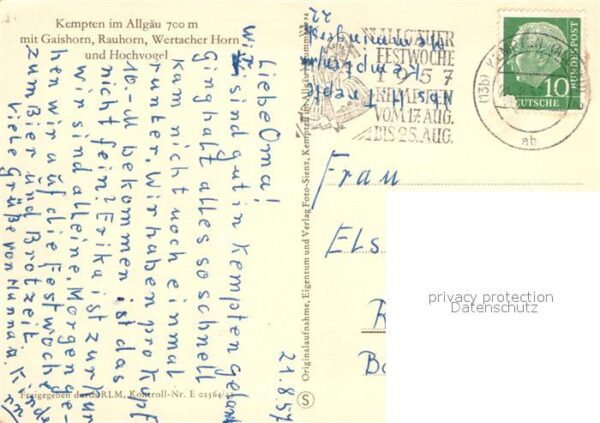 Kempten im Allgäu 700 m
mit Gaishorn, Rauhorn, Wertacher Horn
und Hochvogel
Liebe Oma!
Wir sind gut in Kempten gelandet
Ging halt alles so schnell
kam nicht noch einmal
runter. Wir haben pro Kopf
10.-M bekommen ist das
nicht fein? Erika ist zur Kur
wir sind allein. Morgen ge-
hen wir auf die Festwoche
zum Bier und Brotzeit.
Viele Grüße von Hanna u. Kinder
21.8.57
Freigegeben durch RLM, Kontroll-Nr. E 02564/42
Originalaufnahme, Eigentum und Verlag Foto-Sienz, Kempten im Allgäu
S
ALLGÄUER
FESTWOCHE
1957
KEMPTEN
VOM 17. AUG.
BIS 25. AUG.
(13b) KEMPTEN (ALLGÄU)
ab
DEUTSCHE
BUNDESPOST
10
Abs. H.
Kempten
22
Frau
Els
B
privacy protection
Datenschutz